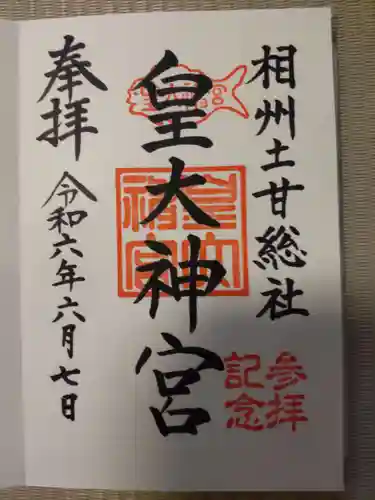 相州土甘総社
皇大神宮
皇大神宮
参拝
記念
奉拝
令和六年六月七日